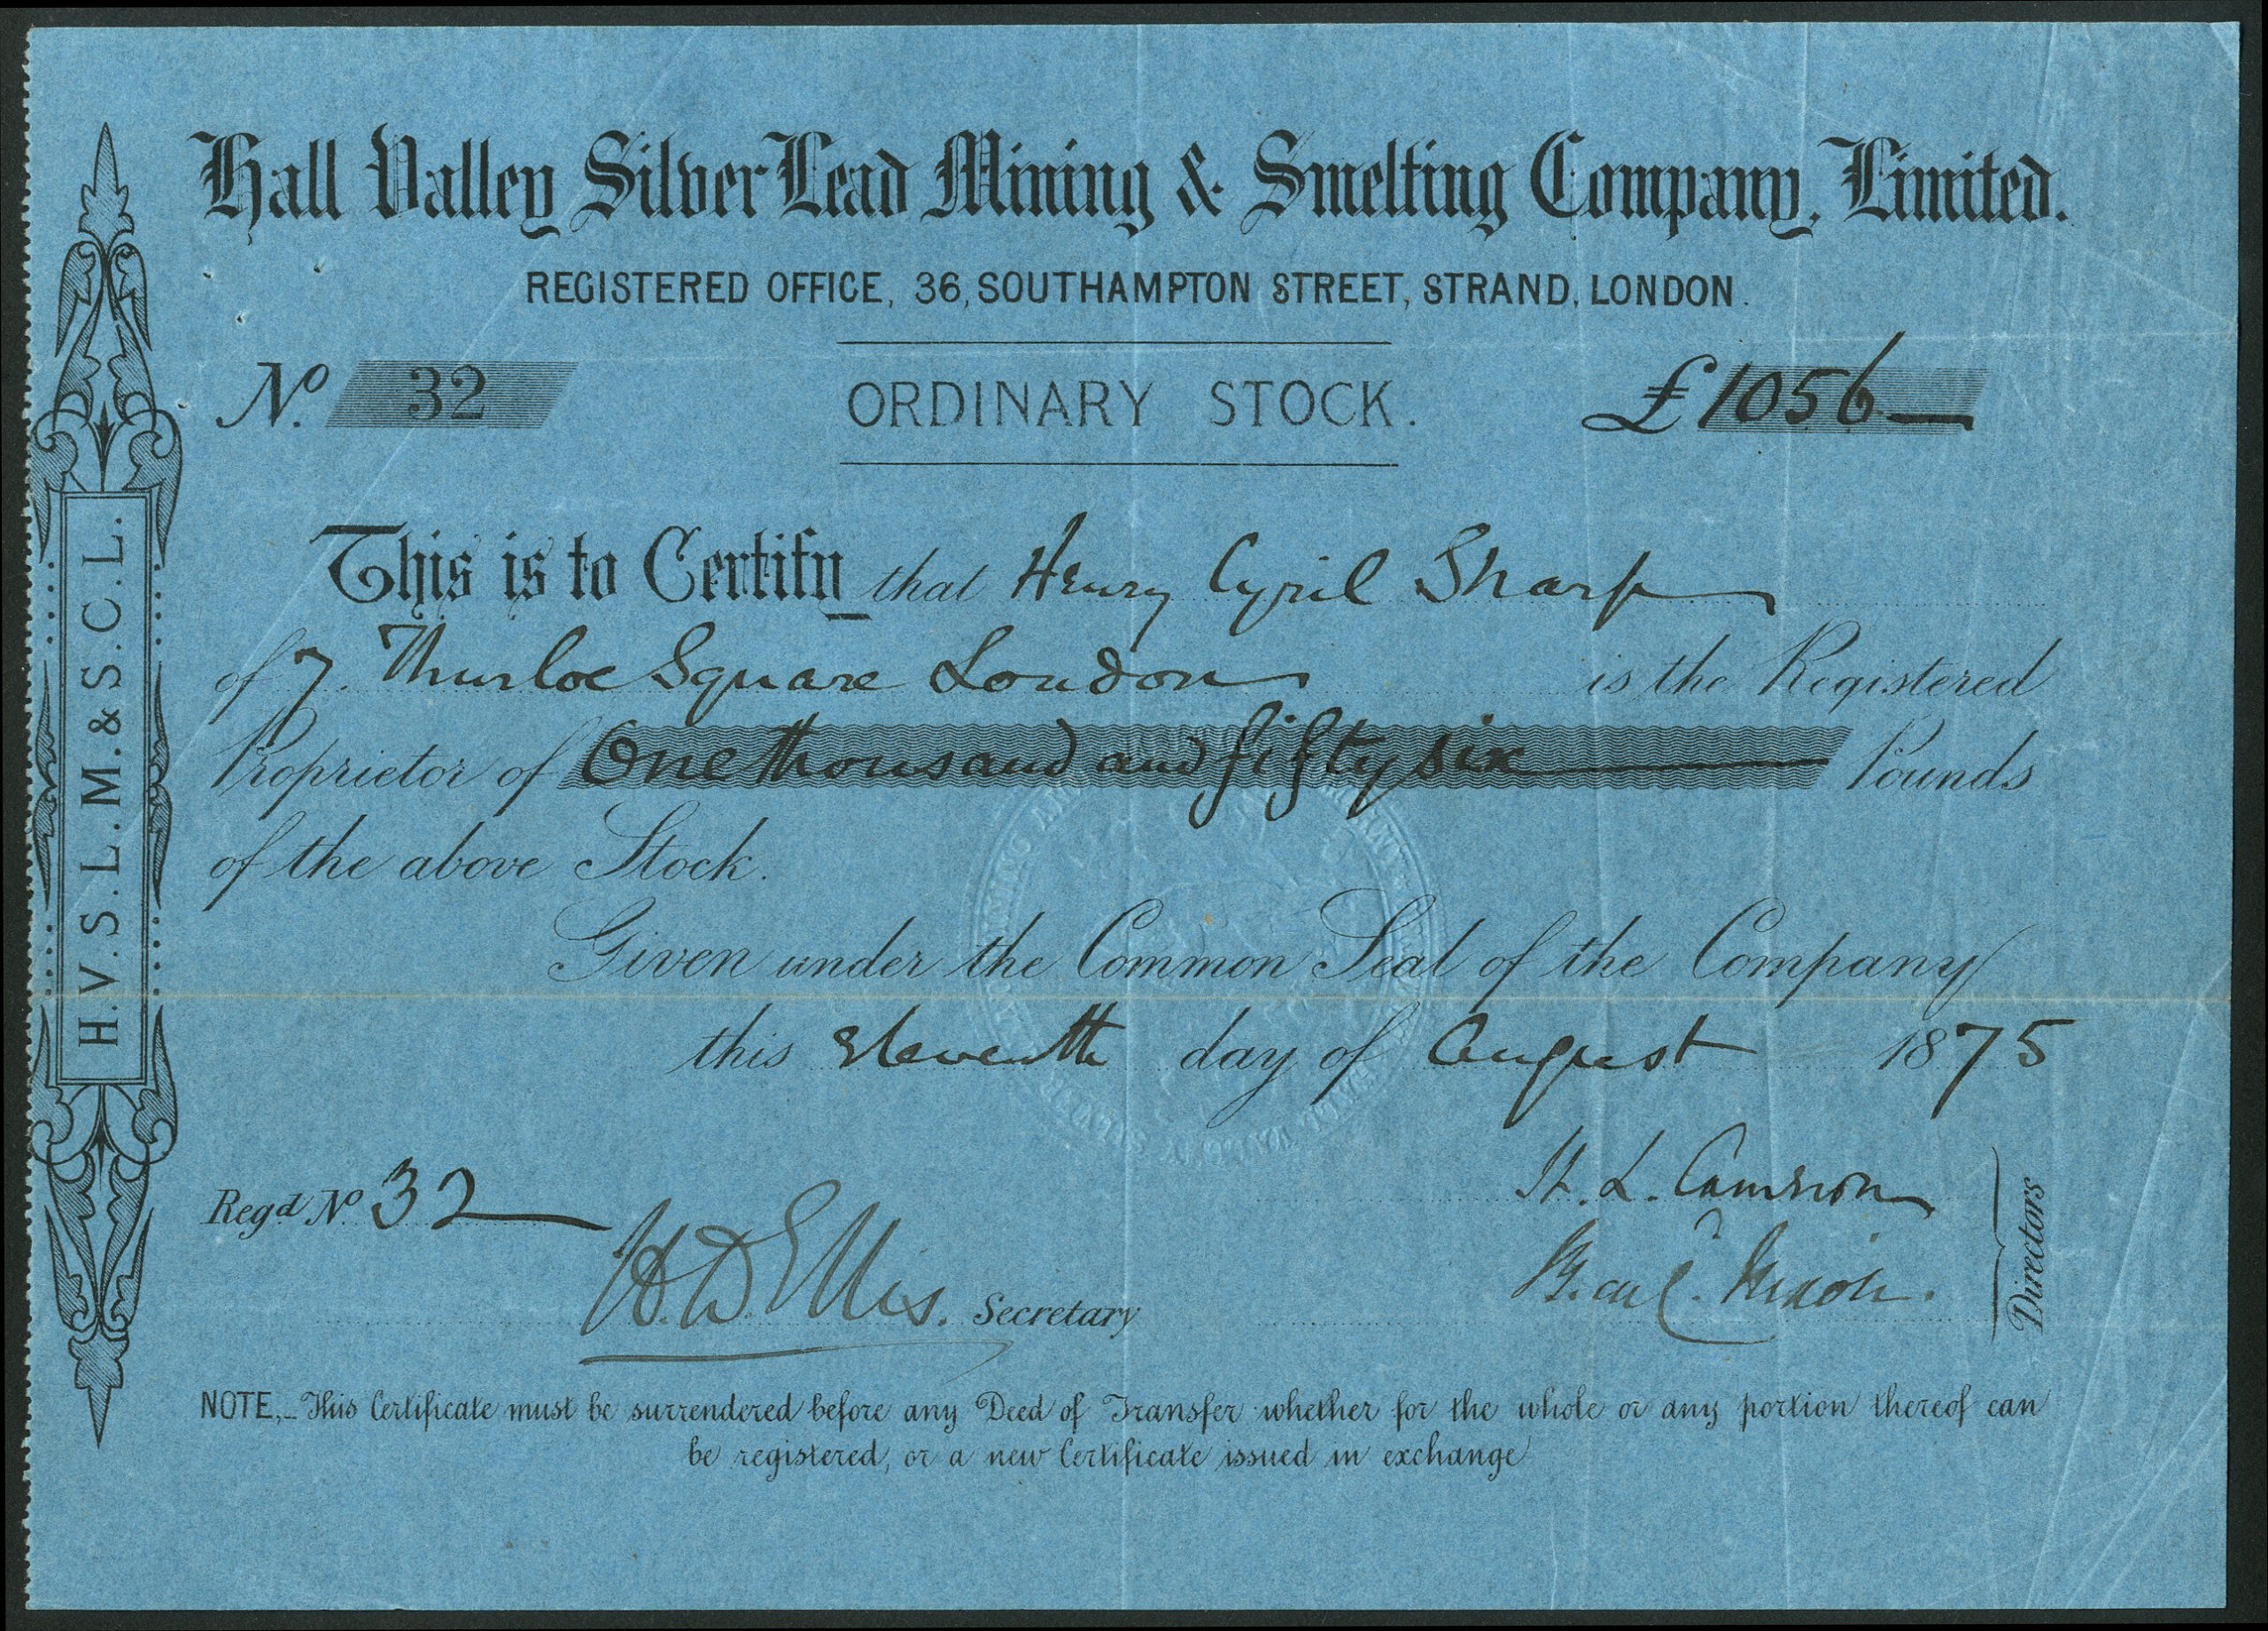 Hall Valley Silver Lead Mining & Smelting Company, Limited.
REGISTERED OFFICE, 36, SOUTHAMPTON STREET, STRAND, LONDON.
No. 32 ORDINARY STOCK. £1056—
This is to Certify that Henry Cyril Sharp
of 7. Thurloe Square London is the Registered
Proprietor of One thousand and fifty six Pounds
of the above Stock.
Given under the Common Seal of the Company
this eleventh day of August 1875
H. L. Cameron
Regd No. 32
H. D Ellis. Secretary
Directors
NOTE,_ This Certificate must be surrendered before any Deed of Transfer whether for the whole or any portion thereof can
be registered, or a new Certificate issued in exchange
H.V.S.L.M.&S.C.L.